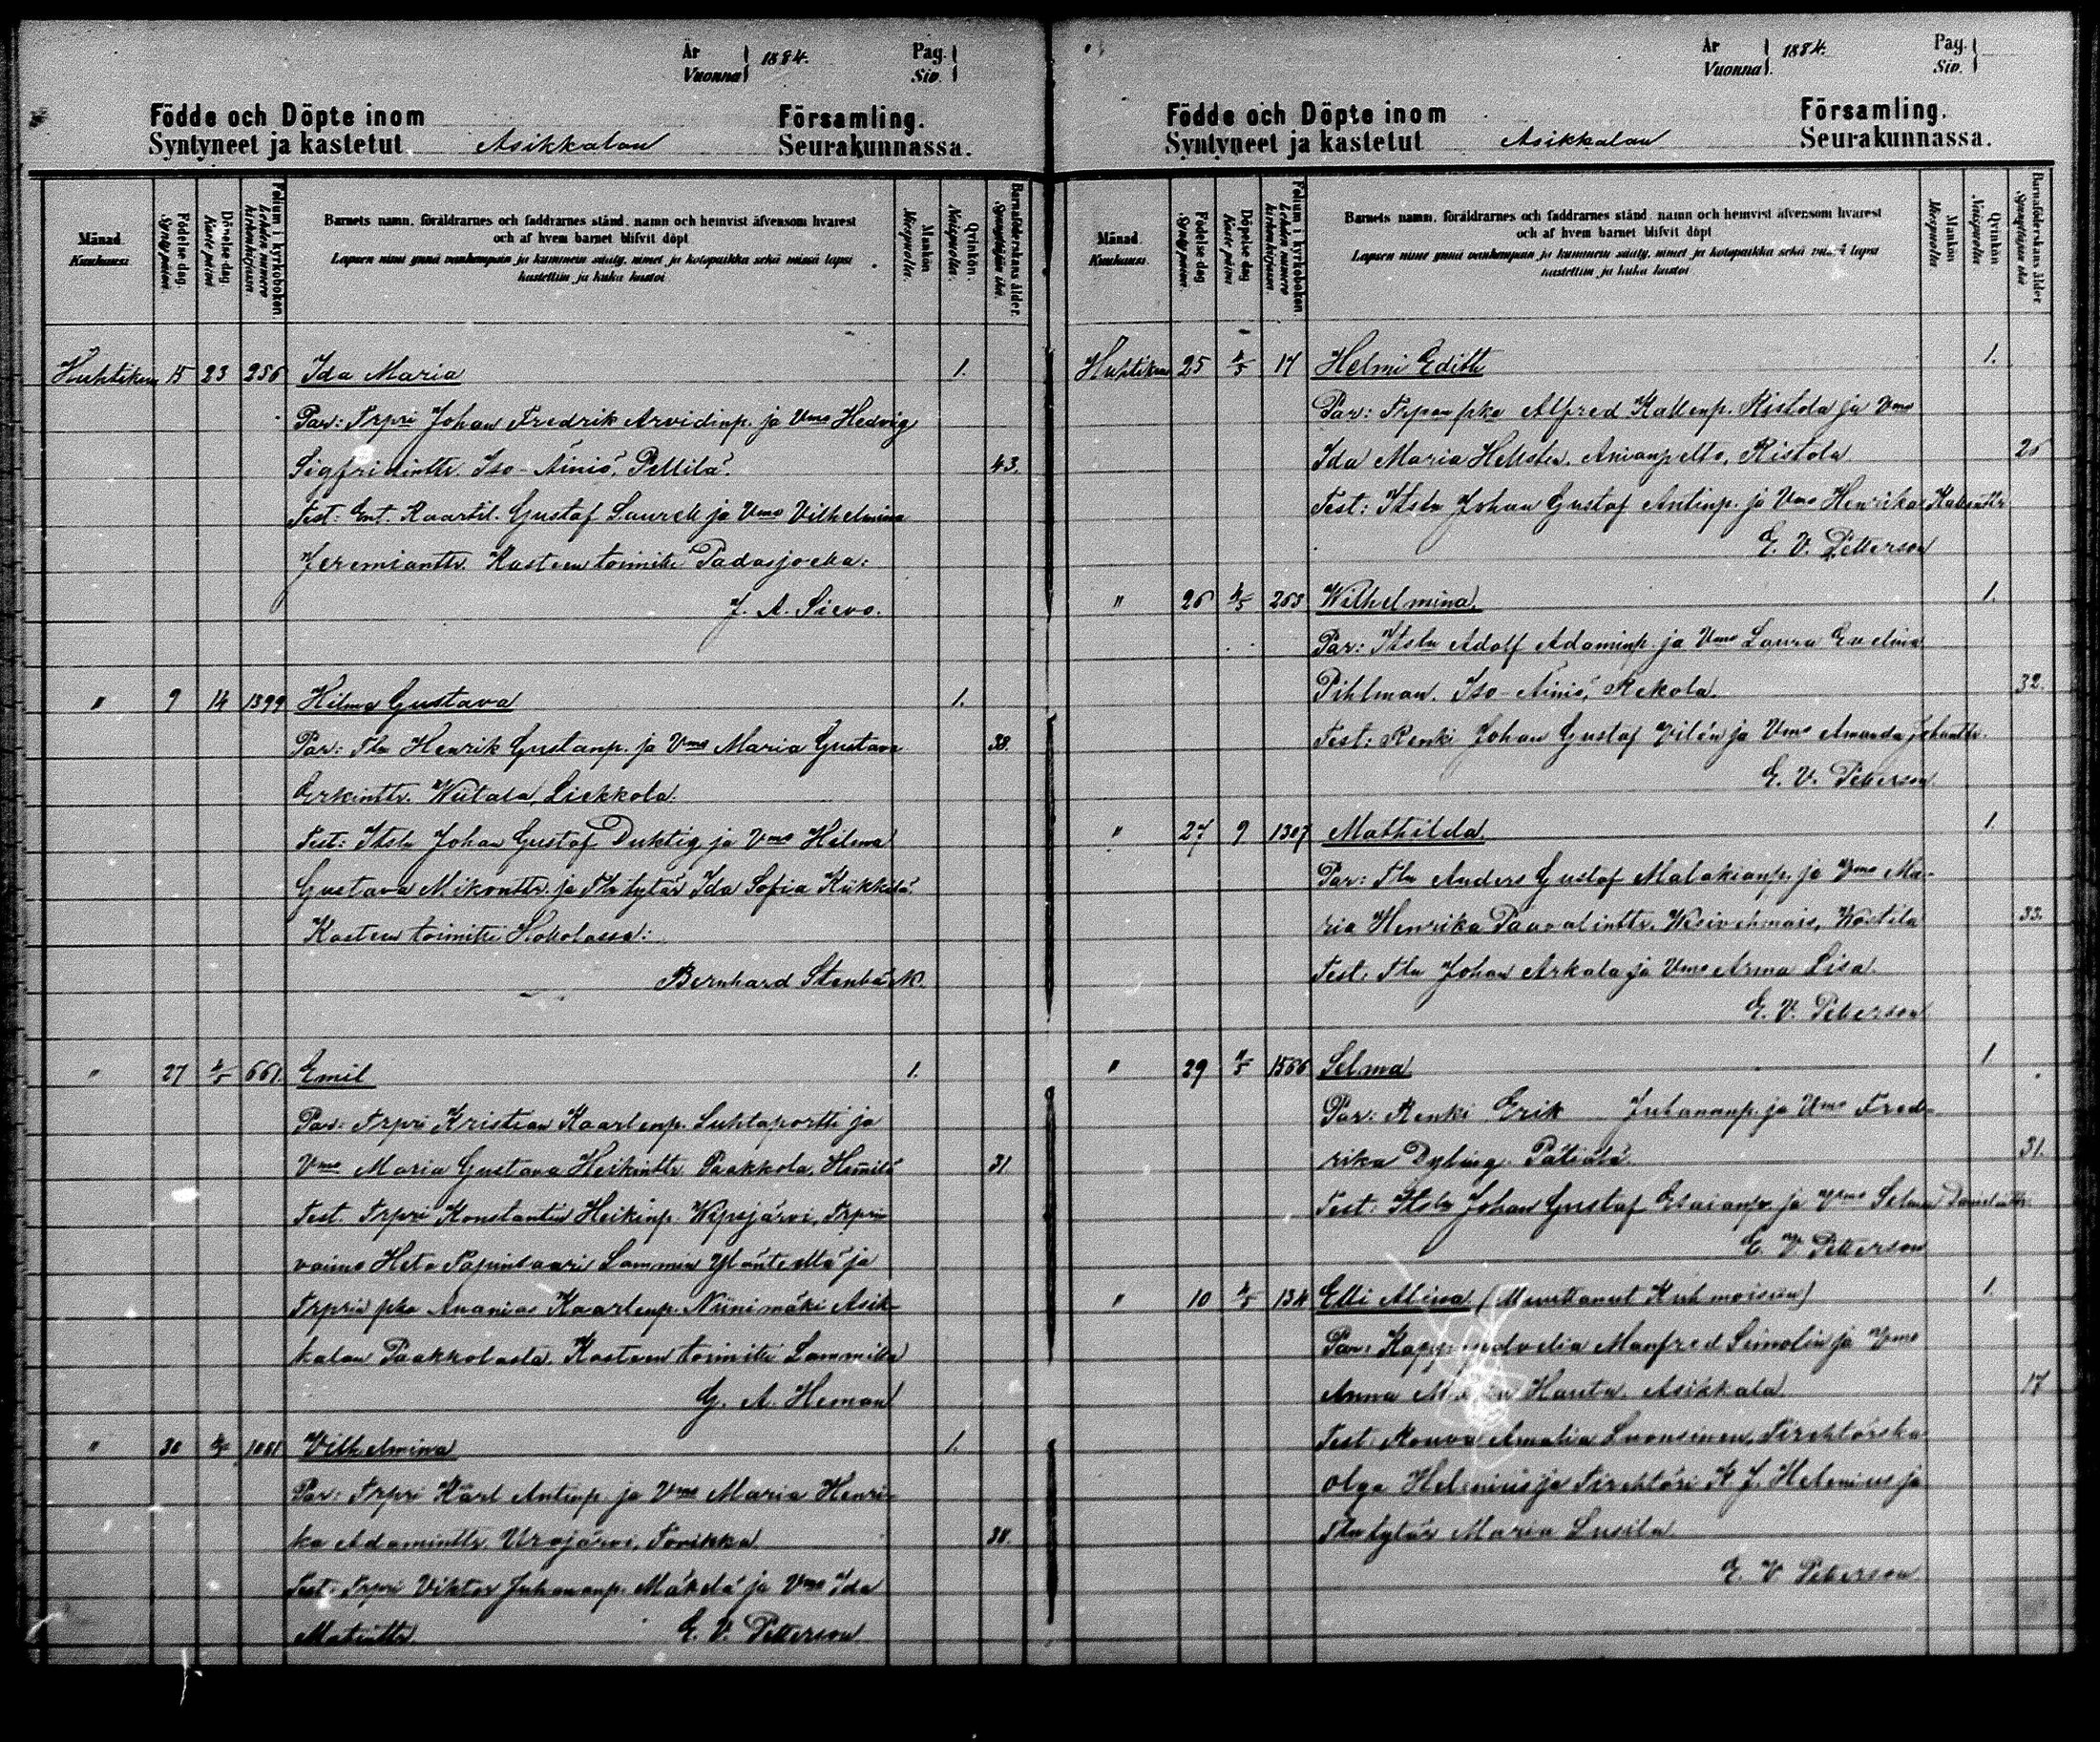 År
Vuonna 1884.
Pag.
Siv.
Födde och Döpte inom Församling.
Syntyneet ja kastetut Asikkalan Seurakunnassa.
Månad. Kuukausi.
Födelse dag. Synty päivä.
Döpelse dag. Kaste päivä
Folium i kyrkoboken. Lehden numero kirkonkirjassa.
Barnets namn, föräldrarnes och faddrarnes stånd, namn och hemvist äfvensom hvarest
och af hvem barnet blifvit döpt
Lapsen nimi ynnä vanhempain ja kummein sääty, nimet ja kotopaikka sekä missä lapsi
kastettiin ja kuka kastoi
Mankön Miespuolia.
Qvinkön. Naispuolia.
Barnaföderskans ålder. Synnyttäjän ikä.
Huhtikuu 15 23 256 Ida Maria 1.
Par: Trpri Johan Fredrik Arvidinp. ja Vmo Hedvig
Sigfridintr. Iso-Äiniö, Pellilä. 43.
Test: Ent. Kaartil. Gustaf Laurell ja Vmo Vilhelmina
Jeremiantr. Kasteen toimitti Padasjoella:
J. A. Sievo.
" 9 14 1399 Hilma Gustava 1.
Par: Tln Henrik Gustanp. ja Vmo Maria Gustava 38.
Erkintr. Wiitala, Liekkola.
Test: Itsln Johan Gustaf Duktig ja Vmo Hilma
Gustava Mikontr. ja Tln tytär Ida Sofia Kukkola.
Kasteen toimitti Hollolassa:
Bernhard Stenbäck.
" 27 4/5 661. Emil 1.
Par: Trpri Kristian Kaarlenp. Luhtaportti ja
Vmo Maria Gustava Heikintr. Paakkola, Hemilä 31
Test. Trpri Konstantin Heikinp. Wepsjärvi, Trprin
vaimo Heta Papinsaari Lammin ja
Trprin pka Ananias Kaarlenp. Niinimäki Asik-
kalan Paakkolasta. Kasteen toimitti Lammilla
G. A. Heman
" 30 1081. Vilhelmina 1.
Par: Trpri Karl Antinp. ja Vmo Maria Henri-
ka Adamintr. Urajärvi, Torikka. 38.
Test: Trpri Viktor Juhananp. Mäkelä ja Vmo Ida
Matintr E. V. Petterson
År
Vuonna 1884.
Pag.
Siv.
Födde och Döpte inom Församling.
Syntyneet ja kastetut Asikkalan Seurakunnassa.
Månad. Kuukausi.
Födelse dag. Synty päivä.
Döpelse dag. Kaste päivä
Folium i kyrkoboken. Lehden numero kirkonkirjassa.
Barnets namn, föräldrarnes och faddrarnes stånd, namn och hemvist äfvensom hvarest
och af hvem barnet blifvit döpt
Lapsen nimi ynnä vanhempain ja kummein sääty, nimet ja kotopaikka sekä missä lapsi
kastettiin ja kuka kastoi
Mankön Miespuolia
Qvinkön Naispuolia
Barnaföderskans ålder. Synnyttäjän ikä
Huhtikuu 25 4/5 17 Helmi Edith 1.
Par: Trpan pka Alfred Kallenp. Ristola ja Vmo
Ida Maria Hellsten. Anianpelto, Ristola 26
Test: Itsln Johan Gustaf Antinp. ja Vmo Henrika Kallentr
E. V. Petterson
" 26 4/5 263 Wilhelmina. 1.
Par: Itsln Adolf Adaminp. ja Vmo Laura Evelina
Pihlman. Iso-Äiniö, Rekola. 32.
Test: Renki Johan Gustaf Vilén ja Vmo Amanda Johantr.
E. V. Peterson.
" 27 9 1307 Mathilda. 1.
Par: Tln Anders Gustaf Malakianp. ja Vmo Ma-
ria Henrika Paavalintr. Wesivehmais, Wästilä 33.
Test: Tln Johan Arkala ja Vmo Anna Lisa.
E. V. Peterson
" 29 1566 Selma 1
Par: Renki Erik Juhananp. ja Vmo Fred-
rika Dybing. Pätiälä. 31.
Test: Itsln Johan Gustaf Esaianp. ja Vmo Selma
E. V. Petterson
" 10 4/5 134 Elli Alina (Muuttanut Kuhmoisiin) 1.
Par: Manfred Limolin ja Vmo
Anna Hanta. Asikkala. 17
Test: Rouva Amalia Luonsinen, Tirehtörska
Olga Helenius ja Tirehtöri K. J. Helenius ja
Tln tytär Maria Lusila
E. V. Peterson